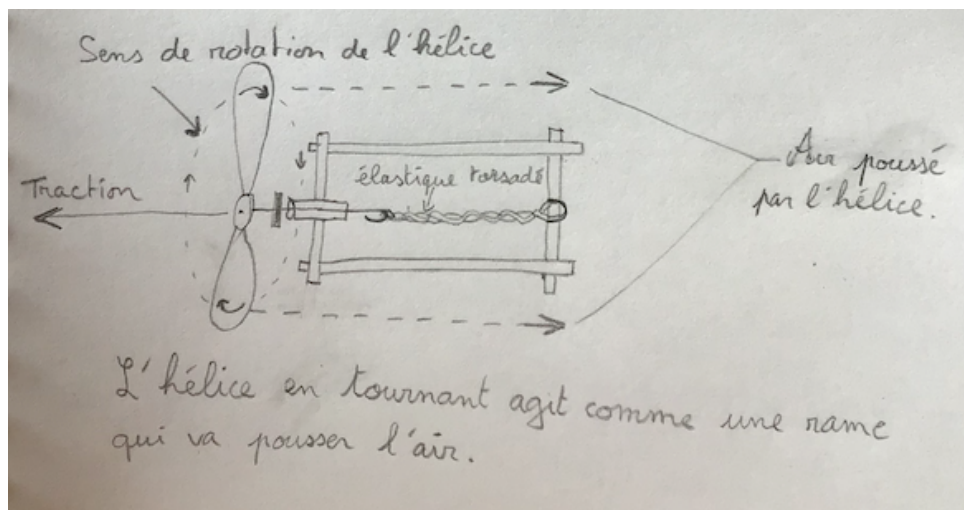 Sens de rotation de l'hélice
Traction
élastique torsadé
Air poussé
par l'hélice.
L'hélice en tournant agit comme une rame
qui va pousser l'air.